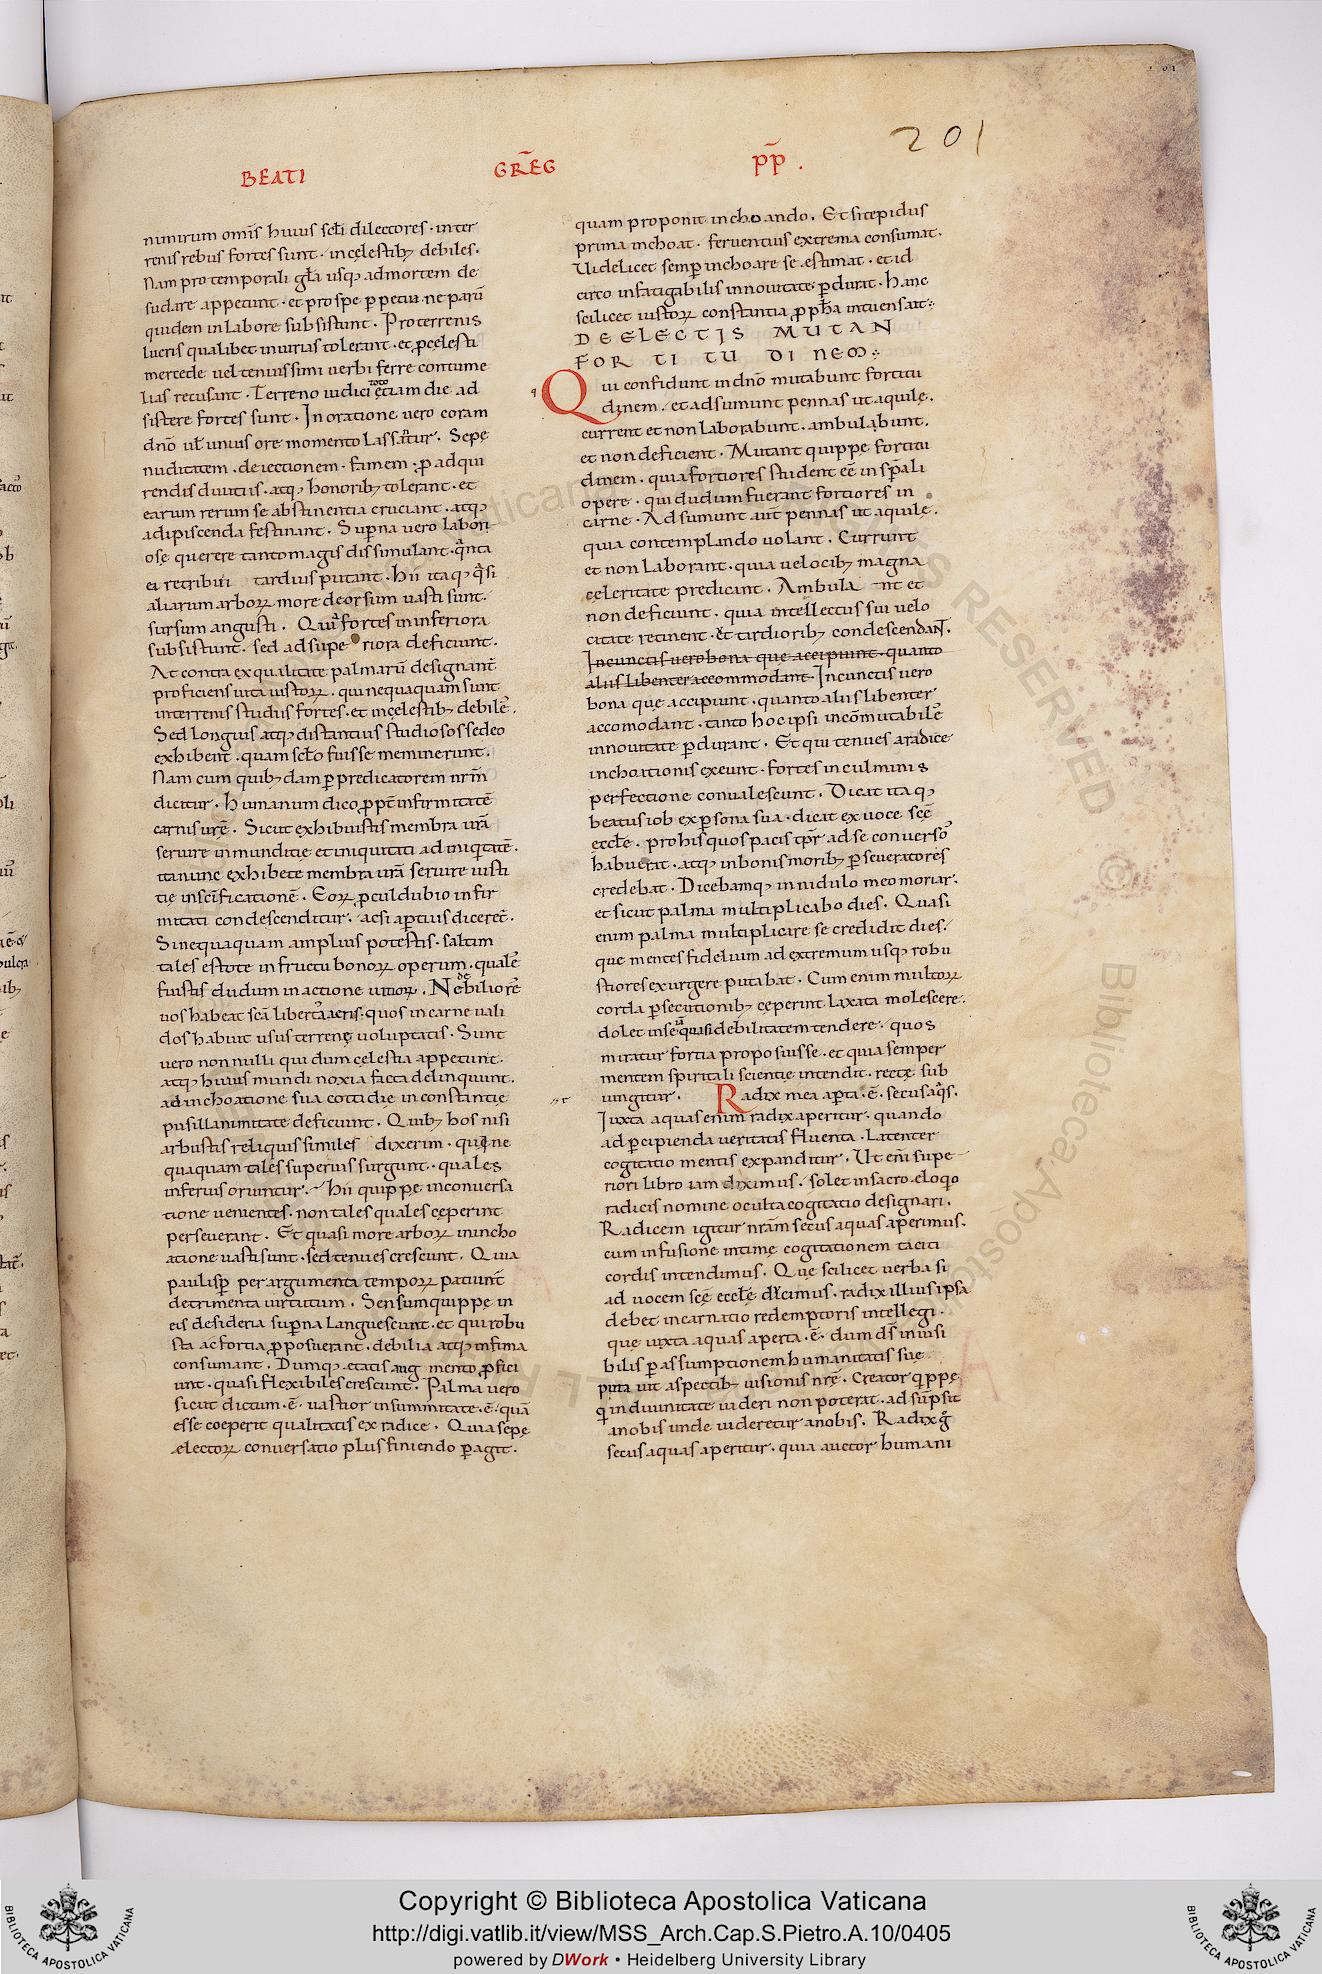 201
BEATI GR̄EG P̄P .
nimirum om̄s huius scl̄i dilectores · in ter
renis rebus fortes sunt · in cęlestib; debiles.
Nam pro temporali gl̄a usq; ad mortem de
sudare appetunt · et pro spe ꝑpetua · ne parū
quidem in labore subsistunt. Pro terrenis
lucris quaslibet iniurias tolerant · et ꝓ cęlesti
mercede uel tenuissimi uerbi ferre contume
lias recusant · Terreno iudici toto ętiam die ad
sistere fortes sunt · In oratione uero coram
dn̄o ul̄ unius ore momento lassantur. Sepę
nuditatem · deiectionem · famem · ꝓ adqui
rendis diuitiis · atq; honorib; tolerant · et
earum rerum se abstinentia cruciant · atq;
adipiscenda festinant. Supn̄a uero labori
ose querere tanto magis dissimulant · qͣnta
ei retribui tardius putant. Hii itaq; qͣsi
aliarum arborꝝ more deorsum uasti sunt.
sursum angusti. Quia fortes in inferiora
subsistunt. sed ad supe riora deficiunt.
At contra ex qualitate palmarū designant̄
proficiens uita iustorꝝ. qui nequaquam sunt
in terrenis studiis fortes · et in cęlestib; debiles.
Sed longius atq; distantius studiosos se deo
exhibent̄ · quam scl̄o fuisse meminerunt.
Nam cum quib; dam ꝑ predicatorem nr̄m
dicitur · Humanum dico ꝓpt̄ infirmitatē
carnis urę̄. Sicut exhibuistis membra ur̄a
seruire inmunditię et iniquitati ad iniqͥtatē.
ita nunc exhibete membra ur̄a seruire iusti
tię in sc̄ificationē. Eorꝝ ꝓculdubio infir
mitati condescenditur. acsi aꝑtius diceret̄.
Si nequaquam amplius potestis · saltim
tales estote in fructu bonorꝝ operum · quales
fuistis dudum in actione uitiorꝝ. Ne debiliores
uos habeat sc̄a libertas caritatis · quos in carne uali
dos habuit usus terrenę uoluptatis. Sunt
uero non nulli qui dum cęlestia appetunt.
atq; huius mundi noxia facta delinquunt.
ad inchoatione sua cottidie inconstantię
pusillanimitate deficiunt. Quib; hos nisi
arbustis reliquis similes dixerim · qui ne
quaquam tales superius surgunt · quales
inferius oriuntur. Hii quippe in conuersa
tione uenientes · non tales quales cęperint
perseuerant. Et quasi more arborꝝ in incho
atione uasti sunt · sed tenues crescunt. Quia
paulisꝑ per argumenta temporꝝ patiunt̄
detrimenta uirtutum. Sensum quippe in
eis desideria supn̄a languescunt · et qui robu
sta ac fortia ꝓposuerant · debilia atq; infima
consumant. Dumq; ętatis aug mento ꝓfici
unt · quasi flexibiles crescunt. Palma uero
sicut dictum · ē · uastior in summitate · ē · quā
esse coeperit qualitatis ex radice. Quia sepę
electorꝝ conuersatio plus finiendo ꝑagit.
quam proponit inchoando. Et si tepidius
prima inchoat · feruentius extrema consumat.
Uidelicet semꝑ inchoare se ęstimat · et id
circo infatigabilis in nouitate ꝑdurat. Hanc
scilicet iustorꝝ constantia ꝓpħa intuens ait:
DE ELECTIS MUTAN
FOR TI TU DI NEM:
Qui confidunt in dn̄o mutabunt fortitu
dinem · et adsumunt pennas ut aquilę.
current et non laborabunt · ambulabunt.
et non deficient. Mutant quippe fortitu
dinem · quia fortiores student eē in spāli
opere · qui dudum fuerant fortiores in
carne · Adsumunt aut̄ pennas ut aquilę.
quia contemplando uolant. Currunt
et non laborant · quia uelocib; magna
celeritate predicant. Ambula nt et
non deficiunt. quia intellectus sui uelo
citate retinent · ut tardiorib; condescendant.
In cunctis uero bona que accipiunt · quanto
aliis libenter accommodant · In cunctis uero
bona que accipiunt · quanto aliis libenter
accomodant · tanto hoc ipsi incōmutabiles
in nouitate ꝑdurant. Et qui tenues a radice
inchoationis exeunt · fortes in culmini s
perfectione conualescunt. Dicat itaq;
beatus iob ex ꝑsona sua · dicat ex uoce scę̄
eccl̄ę. pro his quos pacis tp̄r ad se conuersos
habuerat · atq; in bonis morib; ꝑseueratores
credebat. Dicebamq; in nidulo meo moriar.
et sicut palma multiplicabo dies. Quasi
enim palma multiplicare se credidit dies.
que mentes fidelium ad extremum usq; robu
stiores exurgere putabat. Cum enim multorꝝ
corda ꝑsecutionib; cęperint laxata molescere.
dolet in se quasi debilitatem tendere. quos
miratur fortia proposuisse. et quia semper
mentem spiritali scientię intendit. rectę sub
iungitur. Radix mea aꝑta · ē · secus aqͣs.
Iuxta aquas enim radix aperitur. quando
ad ꝑcipienda ueritatis fluenta. Latenter
cogitatio mentis expanditur. Ut eni̅ supe
riori libro iam diximus. solet in sacro eloqͥo
radicis nomine oculta cogitatio designari.
Radicem igitur nr̄am secus aquas aperimus.
cum infusione intimę cogitationem taciti
cordis intendimus. Que scilicet uerba si
ad uocem scę̄ eccl̄ę dicimus. radix illius ipsa
debet incarnatio redemptoris intellegi.
que iuxta aquas aperta · ē · dum ds̄ inuisi
bilis ꝑ assumptionem humanitatis suę
puta uit aspectib; uisionis nrę̄. Creator qͥppę
qͥ in diuinitate uideri non poterat · ad sūpsit
a nobis unde uideretur a nobis. Radix gͦ
secus aquas aperitur. quia auctor humani
Copyright © Biblioteca Apostolica Vaticana
http://digi.vatlib.it/view/MSS_Arch.Cap.S.Pietro.A.10/0405
powered by DWork • Heidelberg University Library
BIBLIOTECA APOSTOLICA VATICANA
BIBLIOTECA APOSTOLICA VATICANA